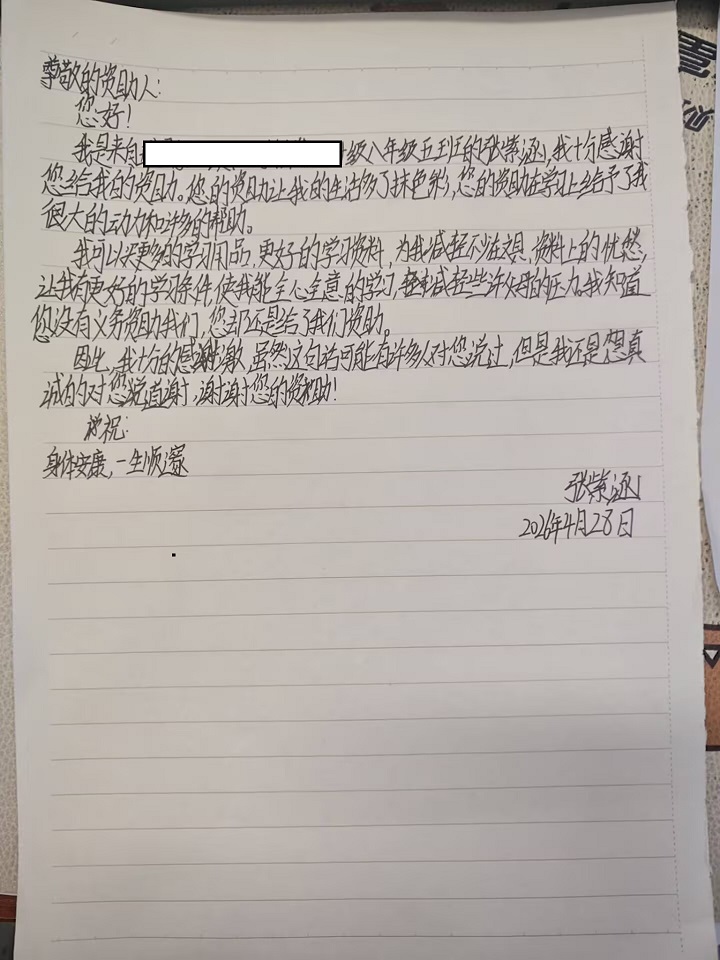 尊敬的资助人:
您好!
我是来自级八年级五班的张紫涵,我十分感谢
您给我的资助。您的资助让我的生活多了抹色彩,您的资助在学习上给予了我
很大的动力和许多的帮助。
我可以买更多的学习用品,更好的学习资料,为我减轻不少在文具、资料上的忧愁,
让我有更好的学习条件,使我能全心全意的学习,减轻些许父母的压力。我知道
您没有义务资助我们,您却还是给了我们资助。
因此,我十分的感激,虽然这句话可能有许多人对您说过,但是我还是想真
诚的对您说道谢,谢谢您的资助!
祝:
身体安康,一生顺遂
张紫涵
2026年4月28日